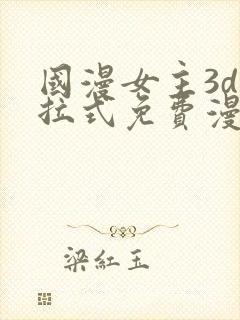 國漫女主3d
拉式免費漫
梁紅玉